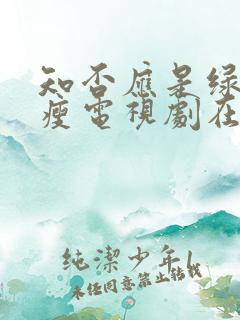 知否應是綠
瘦電視劇在
純潔少年1
未经同意禁止转载